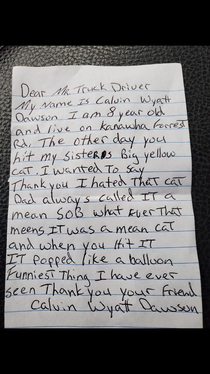 Dear Mr. Truck Driver
My Name Is Calvin Wyatt
Dawson I am 8 year old
and live on Kanawha Forrest
Rd. The other day you
hit my sisters Big yellow
cat. I wanted To say
Thank you I hated That cat
Dad always called IT a
mean SOB what Ever That
meens IT was a mean cat
and when you HIT IT
IT popped like a balloon
Funniest Thing I have ever
seen Thank you your Friend
Calvin Wyatt Dawson